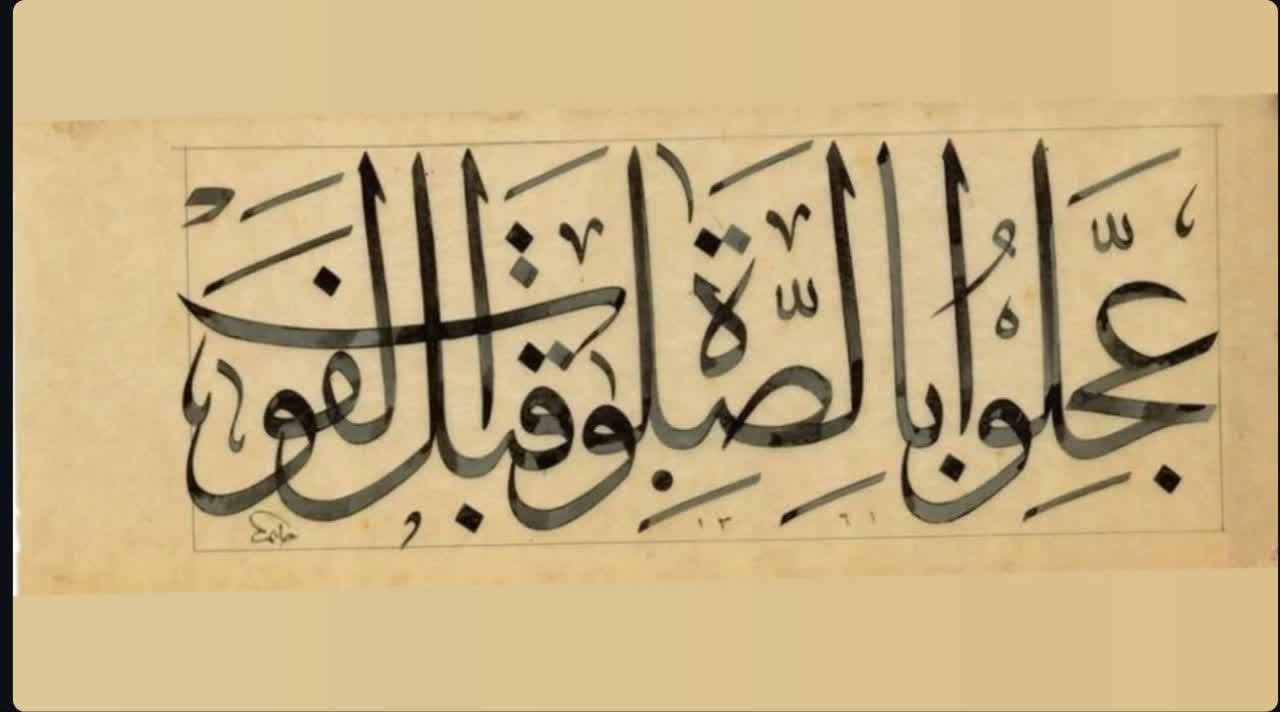 عَجِّلُوا بِالصَّلٰوةِ قَبْلَ الْفَوْتِ
حامد ١٣٦١